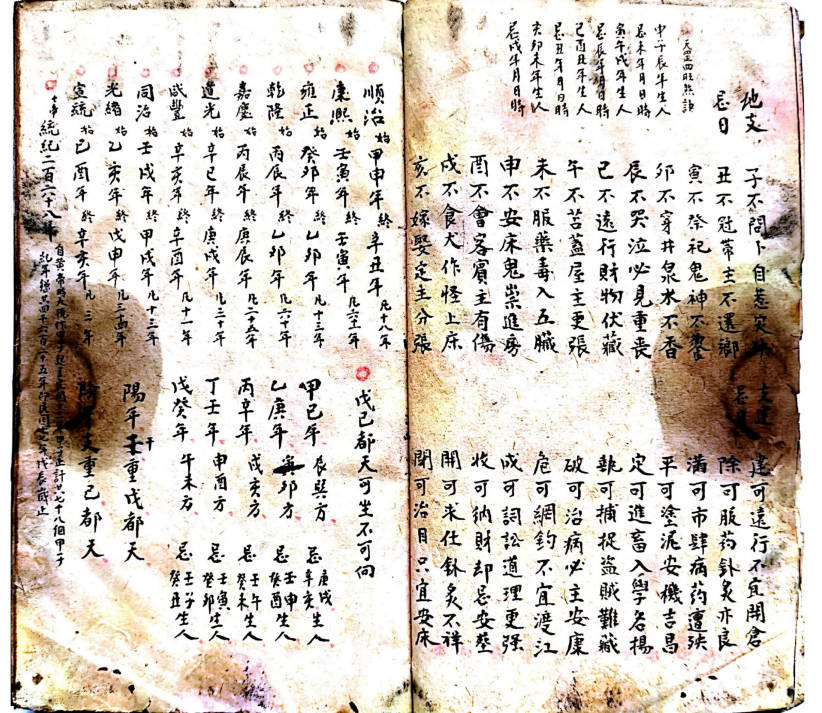 天罡四旺煞訣
申子辰年生人
忌未年月日時
寅午戌年生人
忌辰年月日時
巳酉丑年生人
忌丑年月日時
亥卯未年生人
忌戌年月日時
地支忌日
子不問卜自惹灾殃
丑不冠帶主不還鄉
寅不祭祀鬼神不嘗
卯不穿井泉水不香
辰不哭泣必見重喪
巳不遠行財物伏藏
午不苫蓋屋主更張
未不服藥毒入五臟
申不安床鬼祟進房
酉不會客賓主有傷
戌不食犬作怪上床
亥不嫁娶定主分張
支建忌
建可遠行不宜開倉
除可服药針炙亦良
滿可市肆病药遭殃
平可塗泥安機吉昌
定可進畜入學名揚
執可捕捉盜賊難藏
破可治病必主安康
危可網釣不宜渡江
成可詞訟道理更强
收可納財却忌安塟
開可求仕針炙不祥
閉可治目只宜安床
順治 始甲申年終辛丑年 凡十八年
康熙 始壬寅年終壬寅年 凡六十一年
雍正 始癸卯年終乙卯年 凡十三年
乾隆 始丙辰年終乙卯年 凡六十年
嘉慶 始丙辰年終庚辰年 凡二十五年
道光 始辛巳年終庚戌年 凡三十年
咸豐 始辛亥年終辛酉年 凡十一年
同治 始壬戌年終甲戌年 凡十三年
光緒 始乙亥年終戊申年 凡三十四年
宣統 始己酉年終辛亥年 凡三年
十帝統紀二百六十八年
戊己都天可坐不可向
甲己年 辰巽方 忌庚戌辛亥生人
乙庚年 寅卯方 忌壬申癸酉生人
丙辛年 戌亥方 忌壬午癸未生人
丁壬年 申酉方 忌壬寅癸卯生人
戊癸年 午未方 忌壬子癸丑生人
陽年干重戊都天
陰年支重己都天